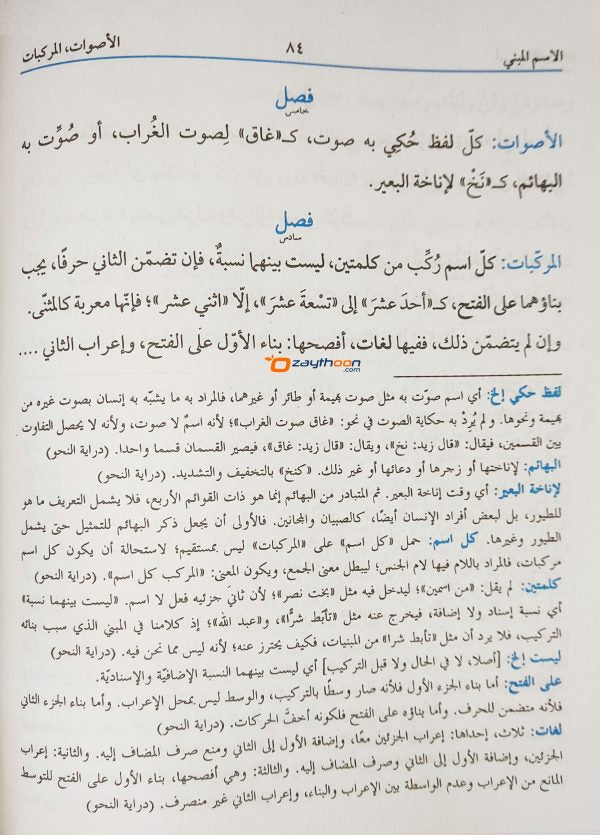 الاسم المبني ٨٤ الأصوات، المركبات
فصل
خامس
الأصوات: كلّ لفظ حُكِي به صوت، كـ«غاق» لِصوت الغُراب، أو صُوِّت به
البهائم، كـ«نَخْ» لإناخة البعير.
فصل
سادس
المركّبات: كلّ اسم رُكِّب من كلمتين، ليست بينهما نسبةٌ، فإن تضمّن الثاني حرفًا، يجب
بناؤهما على الفتح، كـ«أحدَ عشرَ» إلى «تسْعةَ عشرَ»، إلّا «اثني عشر»؛ فإنّها معربة كالمثنّى.
وإن لم يتضمّن ذلك، ففيها لغات، أفصحها: بناء الأوّل على الفتح، وإعراب الثاني ....
Ozaythoon.com
لفظ حكي إلخ: أي اسم صوّت به مثل صوت بهيمة أو طائر أو غيرهما، فالمراد به ما يشبّه به إنسان بصوت غيره من
بهيمة ونحوها. ولم يُرِدْ به حكاية الصوت في نحو: «غاق صوت الغراب»؛ لأنه اسمٌ لا صوت، ولأنه لا يحصل التفاوت
بين القسمين، فيقال: «قال زيد: نخ»، ويقال: «قال زيد: غاق»، فيصير القسمان قسما واحدا. (دراية النحو)
البهائم: لإناختها أو زجرها أو دعائها أو غير ذلك. «كنخ» بالتخفيف والتشديد. (دراية النحو)
لإناخة البعير: أي وقت إناخة البعير. ثم المتبادر من البهائم إنما هو ذات القوائم الأربع، فلا يشمل التعريف ما هو
للطيور، بل لبعض أفراد الإنسان أيضًا، كالصبيان والمجانين. فالأولى أن يجعل ذكر البهائم للتمثيل حتى يشمل
الطيور وغيرها. كل اسم: حمل «كل اسم» على «المركبات» ليس بمستقيم؛ لاستحالة أن يكون كل اسم
مركبات، فالمراد باللام فيها لام الجنس؛ ليبطل معنى الجمع، ويكون المعنى: «المركب كل اسم». (دراية النحو)
كلمتين: لم يقل: «من اسمين»؛ ليدخل فيه مثل «بخت نصر»؛ لأن ثانيَ جزئيه فعل لا اسم. «ليست بينهما نسبة»
أي نسبة إسناد ولا إضافة، فيخرج عنه مثل «تأبّط شرًّا»، و«عبد الله»؛ إذ كلامنا في المبني الذي سبب بنائه
التركيب، فلا يرد أن مثل «تأبط شرا» من المبنيات، فكيف يحترز عنه؛ لأنه ليس مما نحن فيه. (دراية النحو)
ليست إلخ: [أصلا، لا في الحال ولا قبل التركيب] أي ليست بينهما النسبة الإضافيّة والإسناديّة.
على الفتح: أما بناء الجزء الأول فلأنه صار وسطًا بالتركيب، والوسط ليس بمحل الإعراب. وأما بناء الجزء الثاني
فلأنه متضمن للحرف. وأما بناؤه على الفتح فلكونه أخفَّ الحركات. (دراية النحو)
لغات: ثلاث، إحداها: إعراب الجزئين معًا، وإضافة الأول إلى الثاني ومنع صرف المضاف إليه. والثانية: إعراب
الجزئين، وإضافة الأول إلى الثاني وصرف المضاف إليه. والثالثة: وهي أفصحها، بناء الأول على الفتح للتوسط
المانع من الإعراب وعدم الواسطة بين الإعراب والبناء، وإعراب الثاني غير منصرف. (دراية النحو)